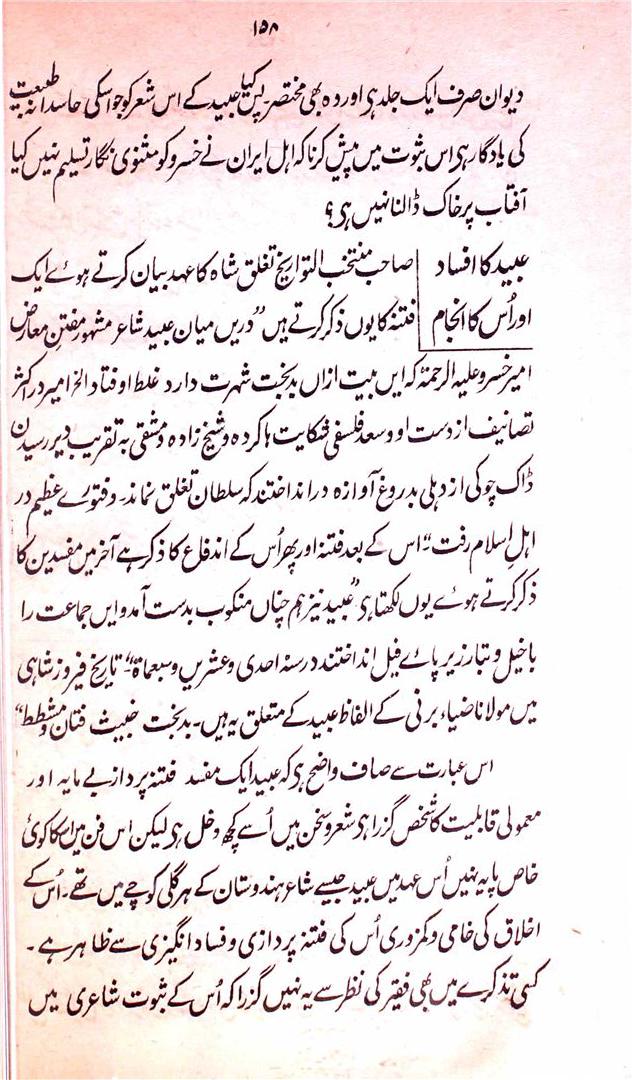 ۱۵۸
دیوان صرف ایک جلد ہی اور وہ بھی مختصر۔ پس کیا عبید کے اس شعر کو جو اسکی حاسدانہ طبیعت
کی یادگار ہی اس ثبوت میں پیش کرنا کہ اہل ایران نے خسرو کو مثنوی نگار تسلیم نہیں کیا
آفتاب پر خاک ڈالنا نہیں ہی؟
عبید کا افساد
اور اُس کا انجام
صاحب منتخب التواریخ تغلق شاہ کا عہد بیان کرتے ہوے ایک
فتنہ کا یوں ذکر کرتے ہیں "دریں میان عبید شاعر مشہور مفتن معارض
امیر خسرو علیہ الرحمۃ کہ ایں بیت ازاں بدبخت شہرت دارد غلط اوفتاد الخ امیر در اکثر
تصانیف از دست او و سعد فلسفی شکایت ہا کردہ و شیخ زادہ دمشقی بہ تقریب دیر رسیدن
ڈاک چوکی از دہلی بدروغ آوازہ در انداختند کہ سلطان تغلق نماند۔ و فتورے عظیم در
اہلِ اسلام رفت"۔ اس کے بعد فتنہ اور پھر اُس کے اندفاع کا ذکر ہے آخر میں مفسدین کا
ذکر کرتے ہوے یوں لکھتا ہی "عبید نیز ہم چناں منکوب بدست آمد و ایں جماعت را
باخیل و تبار زیر پاے فیل انداختند در سنہ احدی و عشرین و سبعماۃ"۔ تاریخ فیروز شاہی
میں مولانا ضیاء برنی کے الفاظ عبید کے متعلق یہ ہیں۔ بدبخت خبیث فتان و مشطط"
اس عبارت سے صاف واضح ہی کہ عبید ایک مفسد فتنہ پرداز بے مایہ اور
معمولی قابلیت کا شخص گزرا ہی شعر و سخن میں اُسے کچھ دخل ہی لیکن اس فن میں اسکا کوئی
خاص پایہ نہیں اُس عہد میں عبید جیسے شاعر ہندوستان کے ہر گلی کوچے میں تھے۔ اُس کے
اخلاق کی خامی و کمزوری اُس کی فتنہ پردازی و فساد انگیزی سے ظاہر ہے۔
کسی تذکرے میں بھی فقیر کی نظر سے یہ نہیں گزرا کہ اُس کے ثبوت شاعری میں